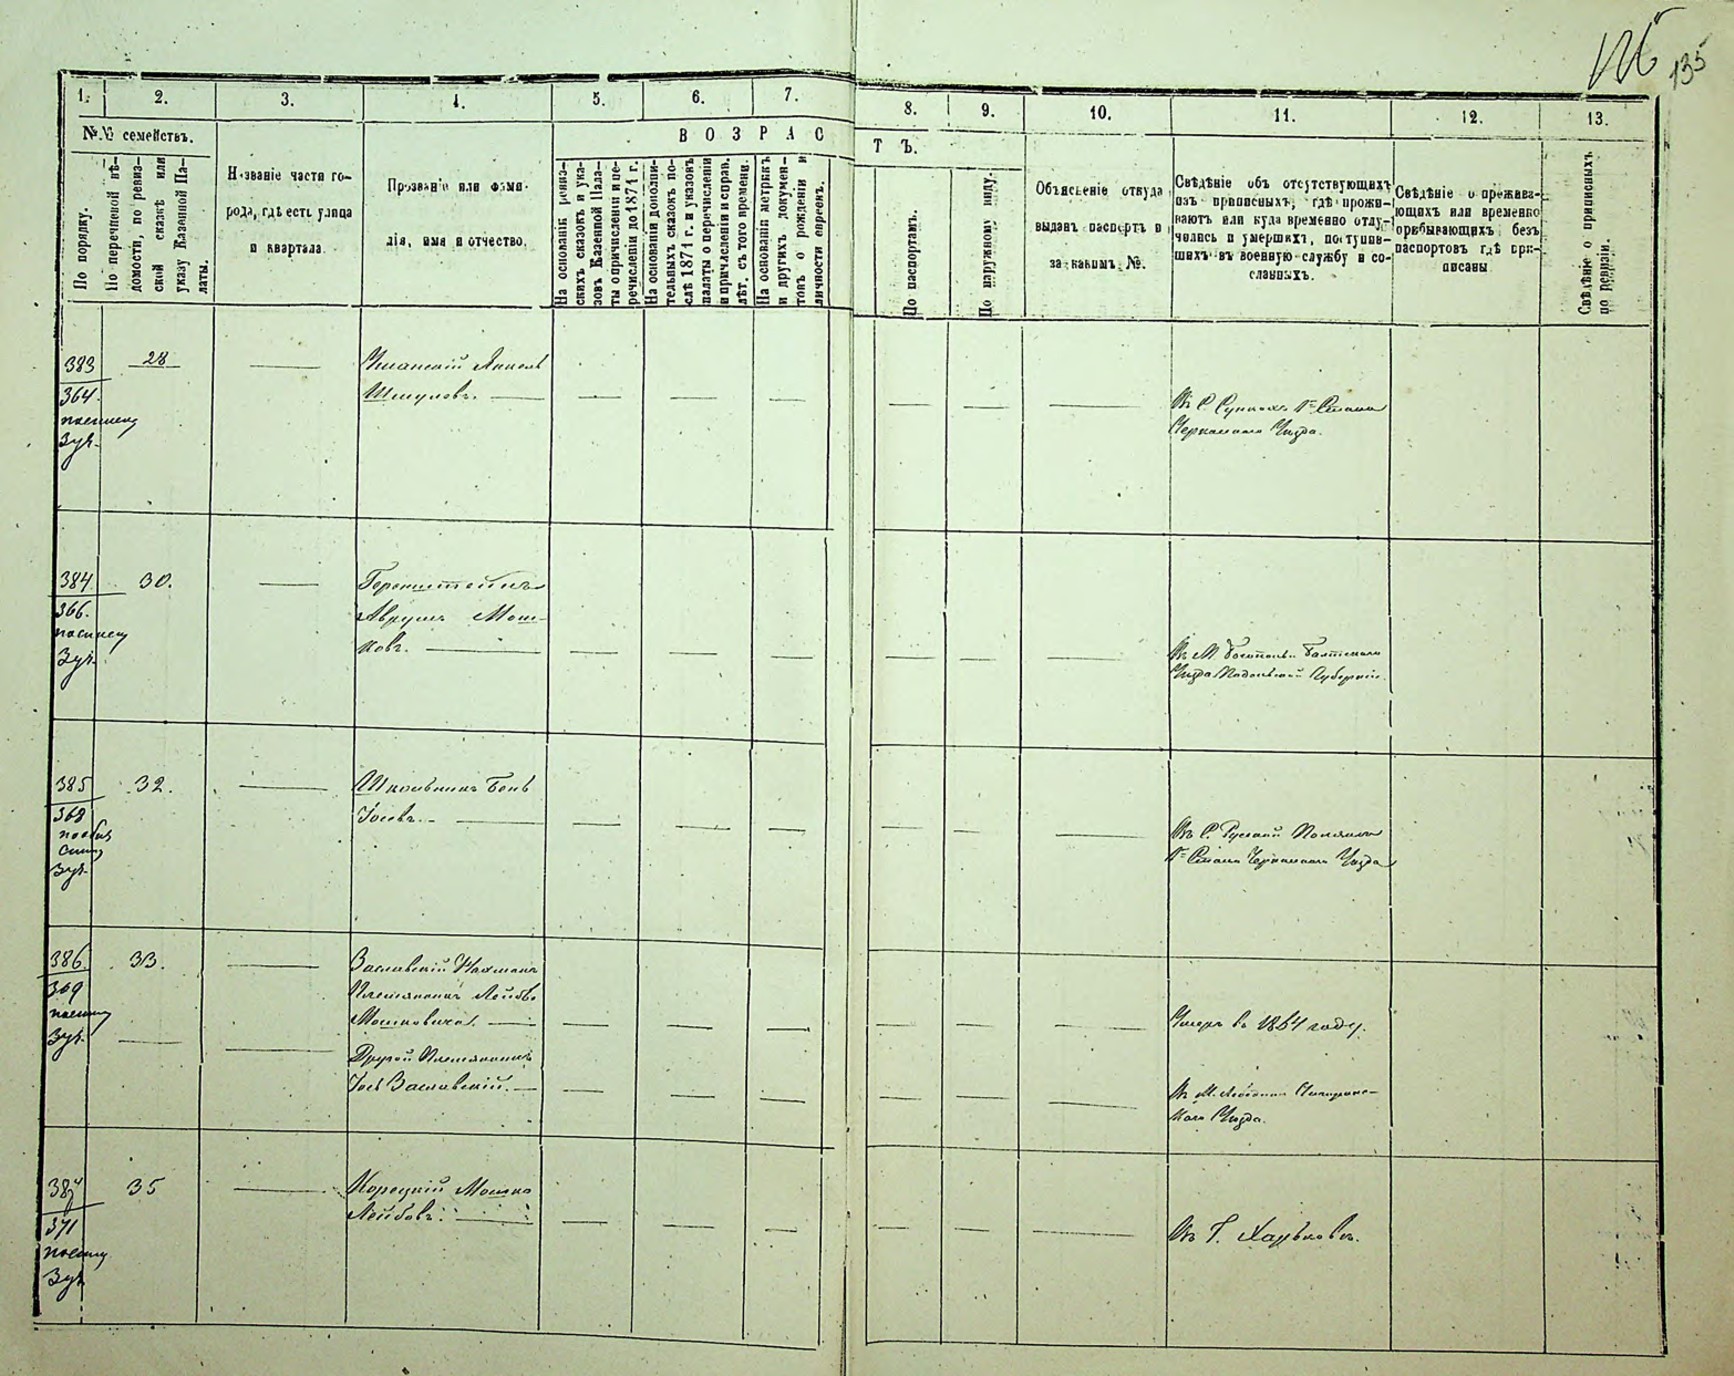 135
1. 2. 3. 4. 5. 6. 7. 8. 9. 10. 11. 12. 13.
№№ семействъ.
По порядку.
По перечневой вѣ-
домости, по ревиз-
ской сказкѣ или
указу Казенной Па-
латы.
Названіе части го-
рода, гдѣ есть улица
и квартала
Прозваніе или фами-
лія, имя и отчество.
ВОЗРАСТЪ.
На основаніи ревиз-
скихъ сказокъ и ука-
зовъ Казенной Пала-
ты о причисленіи и пе-
речисленіи до 1874 г.
На основаніи дополни-
тельныхъ сказокъ по-
слѣ 1874 г. и указовъ
палаты о перечисленіи
и причисленіи и справ.
лѣт. съ того времени.
На основаніи метрикъ
и другихъ докумен-
товъ о рожденіи и
личности евреевъ.
По паспортамъ.
По наружному виду.
Объясненіе откуда
выданъ паспортъ и
за какимъ №.
Свѣдѣніе объ отсутствующихъ
изъ приписныхъ, гдѣ прожи-
ваютъ или куда временно отлу-
чились и умершихъ, поступив-
шихъ въ военную службу и со-
сланныхъ.
Свѣдѣніе о прожива-
ющихъ или временно
пребывающихъ безъ
паспортовъ гдѣ при-
писаны
Свѣдѣніе о приписныхъ
по ревизіи.
383 28
364.
Шмулевъ.
1го Стана
Черкаскаго Уѣзда.
384 30.
366.
Горенштейнъ
Аврумъ Мош-
ковъ.
Балтскаго
Уѣзда Подольской Губерніи.
385 32.
368
Школьникъ Бень
Іосевъ.
Въ С. Русской Полянѣ
1го Стана Черкаскаго Уѣзда
386. 33.
369
Заславскій Нахманъ
Племянникъ Лейбъ
Мошковичъ.
Умеръ въ 1864 году.
Другой Племянникъ
Іось Заславскій.
Въ М. Чигиринс-
каго Уѣзда.
387 35
371
Корецкій Мошко
Лейбовъ.
Въ Г. Харьковѣ.